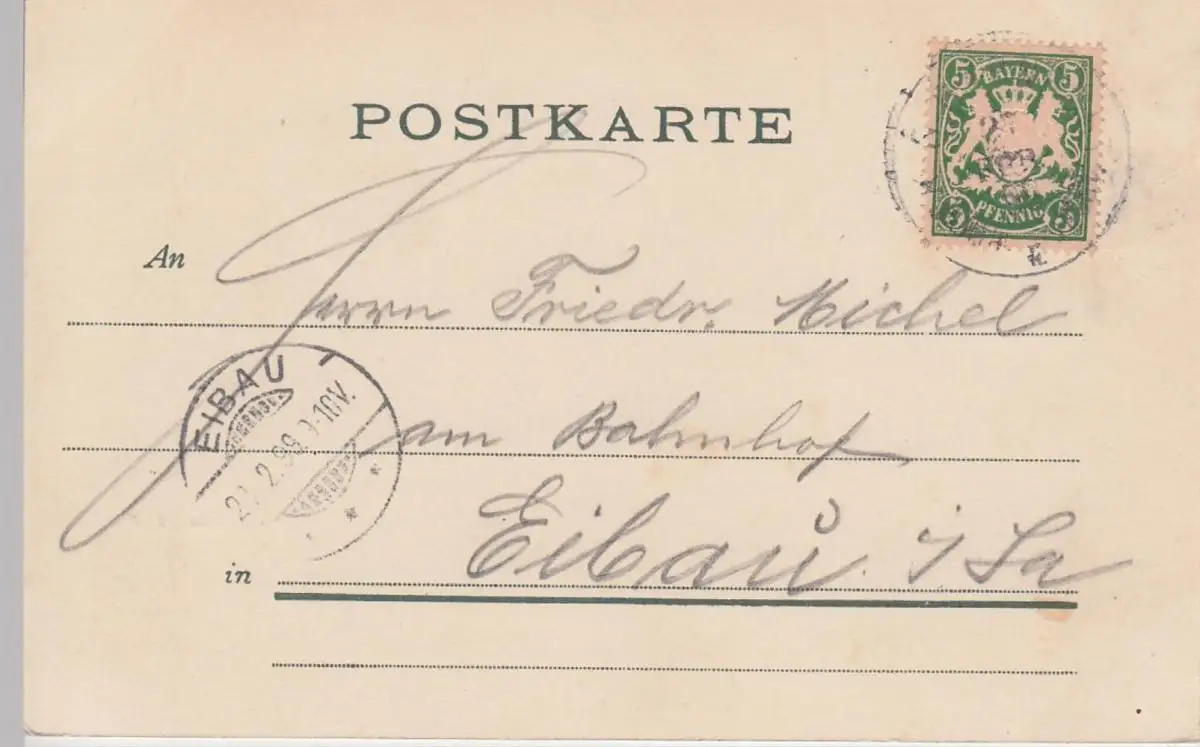 POSTKARTE
5 BAYERN 5
5 PFENNIG 5
An
Herrn Friedr. Michel
EIBAU
2.99 9-10V.
am Bahnhof
in
Eibau i/Sa